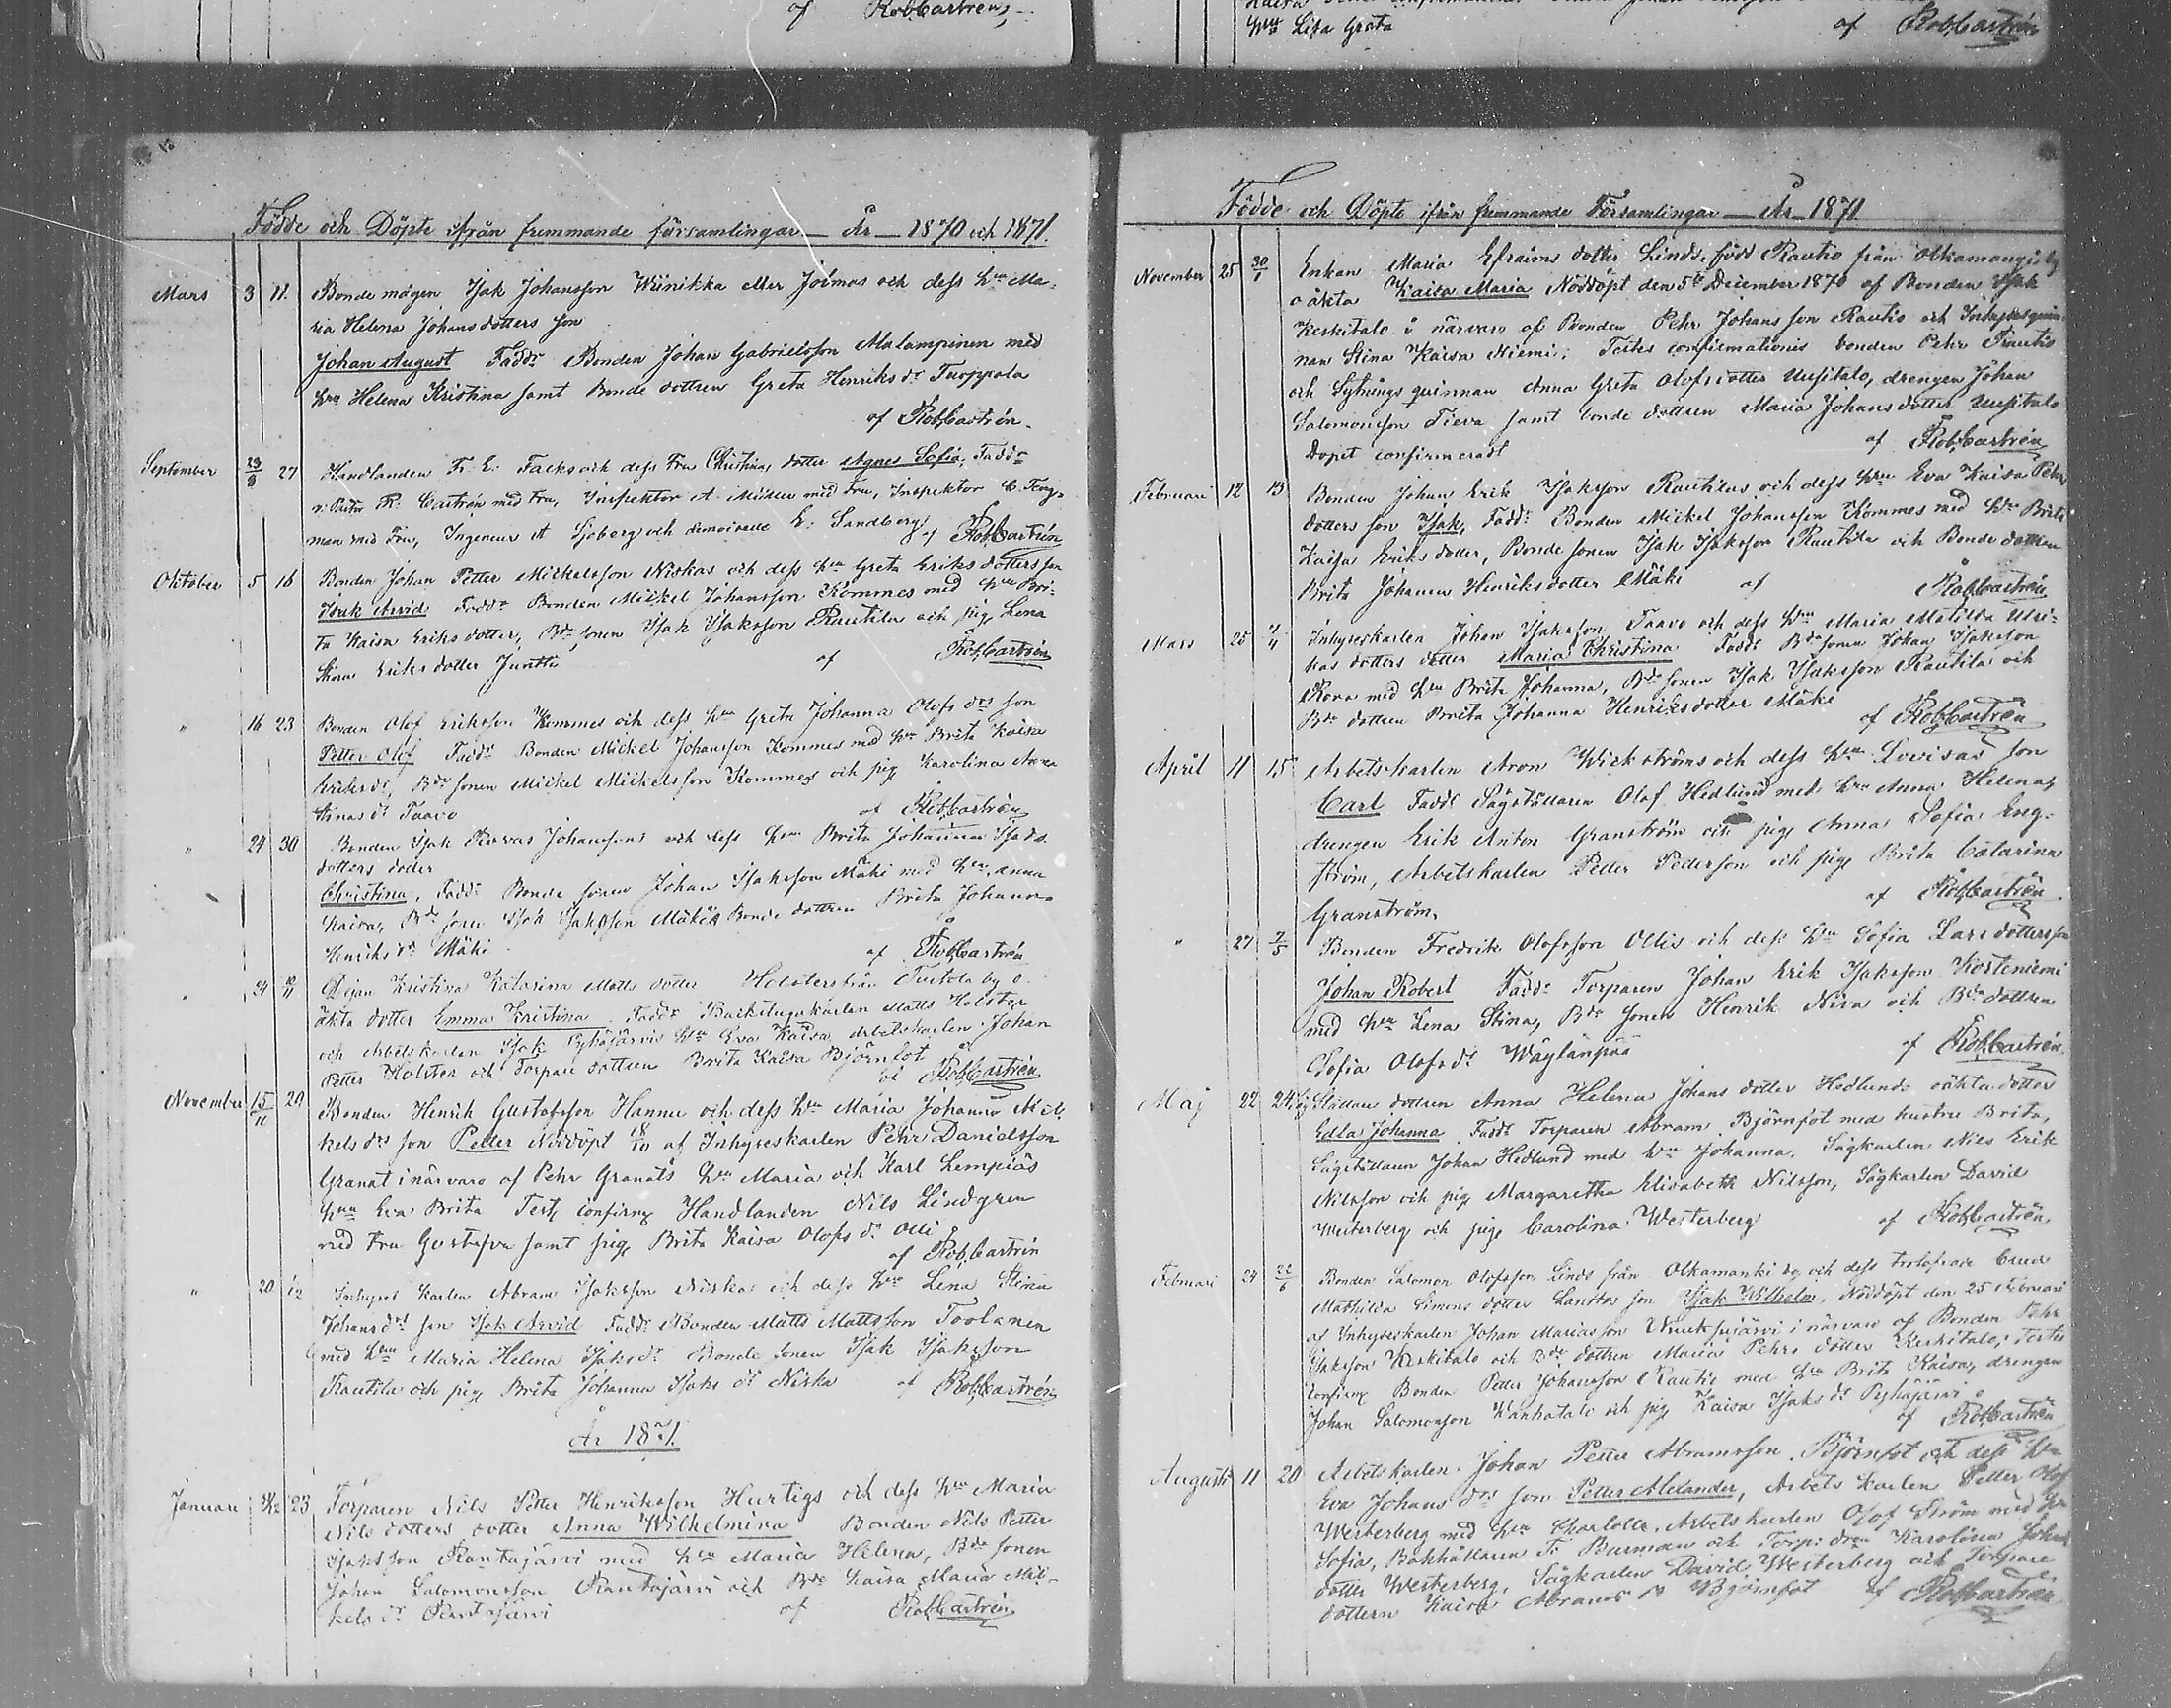 af Rob. Castrén
Hru Lisa Greta
af Rob. Castrén
Födde och Döpte ifrån fremmande församlingar — År — 1870 och 1871.
Mars 3 11. Bonde mågen Isak Johansson Wiinikka eller Jolmas och dess Hu Ma-
ria Helena Johansdotters son
Johan August Faddr Bonden Johan Gabrielsson Malampinen med
Hru Helena Kristina samt Bonde dottren Greta Henriks dr Tuoppola
af Rob. Castrén.
September 27 Handlanden Fr. E. Facks och dess Fru Christina, dotter Agnes Sofia, Faddr
v. Pastor R. Castrén med Fru, Inspektor A. Müller med Fru, Inspektor C. Teng-
man med Fru, Ingeneur A Sjöberg och demoiselle E. Sandberg af Rob. Castrén
Oktober 5 16 Bonden Johan Petter Mickelsson Niskas och dess Hu Greta Eriksdotters son
Isak Arvid Faddr Bonden Mickel Johansson Kommes med Hru Bri-
ta Kaisa Eriks dotter, Bde sonen Isak Isaksson Rautila och pig Lena
Stina Eriks dotter Juntti af Rob. Castrén
" 16 23 Bonden Olof Eriksson Kommes och dess Hu Greta Johanna Olofs drs son
Petter Olof Faddr Bonden Mickel Johansson Kommes med Hru Brita Kaisa
Eriks dr, Bde sonen Mickel Mickelsson Kommes och pig Karolina Anna
Stinas dr Taavo af Rob. Castrén
" 24 30 Bonden Isak Rovas Johanssons och dess Hu Brita Johanna Isaks
dotters doter
Christina, Faddr Bonde sonen Johan Isaksson Mäki med Hru Anna
Kaisa, Bde sonen Isak Isaksson Mäki Bonde dottren Brita Johanna
Henriks dr Mäki af Rob. Castrén
" 24 Pigan Kristina Katarina Matts dotter Holsters från Turtola by o-
äkta dotter Emma Kristina. Faddr Backstugukarlen Matts Holster
och Arbetskarlen Isak Pyhäjärvis Hu Eva Kaisa, Arbetskarlen Johan
Petter Holster och Torpare dottren Brita Kaisa Björnfot
af Rob. Castrén
November 15/11 20 Bonden Henrik Gustafsson Hannu och dess Hu Maria Johanna Mi-
kels drs son Petter Nöddöpt 18/10 af Inhyseskarlen Pehr Danielsson
Granat i närvaro af Pehr Granats Hu Maria och Karl Lempiäs
Hru Eva Brita Test confirm Handlanden Nils Lindgren
med Fru Gustafva samt pig Brita Kaisa Olofs dr Olli
af Rob. Castrén
" 20 Inhyses karlen Abram Isaksson Niskas och dess Hu Lena Stina
Johans drs son Isak Arvid Faddr Bonden Matts Mattsson Toolanen
med Hru Maria Helena Isaks dr Bonde sonen Isak Isaksson
Rautila och pig Brita Johanna Isaks dr Niska af Rob. Castrén
År 1871.
Januari 23 Torparen Nils Petter Henriksson Hurtigs och dess Hu Maria
Nils dotters dotter Anna Wilhelmina Bonden Nils Petter
Isaksson Rantajärvi med Hu Maria Helena, Bde sonen
Johan Salomonsson Rantajärvi och Bde Kaisa Maria Mic-
kels dr Rantajärvi af Rob. Castrén
Födde och Döpte ifrån fremmande Församlingar — År — 1871
November 25 30/1 Enkan Maria Efraims dotter Linds, född Rautio från Olkamangi by
oäkta Kaisa Maria Nöddöpt den 5te December 1870 af Bonden Isak
Keskitalo i närvaro af Bonden Pehr Johansson Rautio och Inhysesquin-
nan Stina Kaisa Niemi; Testes confirmationis bonden Pehr Rautio
och Sytningsquinnan Anna Greta Olofsdotter Uusitalo, drengen Johan
Salomonsson Tieva samt bonde dottren Maria Johansdotter Uusitalo
Dopet confirmeradt af Rob. Castrén
Februari 12 13 Bonden Johan Erik Isaksson Rautilas och dess Hru Eva Kaisa Pehrs
dotters son Isak, Faddr Bonden Mickel Johansson Kommes med Hru Brita
Kaisa Eriks dotter, Bonde sonen Isak Isaksson Rautila och Bonde dottren
Brita Johanna Henriksdotter Mäki af Rob. Castrén
Mars 25 Inhyseskarlen Johan Isaksson Taavo och dess Hru Maria Matilda Ulri-
kas dotters dotter Maria Christina Faddr Bdesonen Johan Isaksson
Rova med Hru Brita Johanna, Bdesonen Isak Isaksson Rautila och
Bde dottren Brita Johanna Henriksdotter Mäki
af Rob. Castrén
April 11 15 Arbetskarlen Aron Wickströms och dess Hru Lovisas son
Carl Faddr Sågställaren Olof Hedlund med Hru Anna Helena,
drengen Erik Anton Granström och pig Anna Sofia Eng-
ström, Arbetskarlen Petter Pettersson och pig Brita Catarina
Granström, af Rob. Castrén
" 27 7/5 Bonden Fredrik Olofsson Ollis och dess Hru Sofia Larsdotters son
Johan Robert Faddr Torparen Johan Erik Isaksson Korteniemi
med Hru Lena Stina, Bde sonen Henrik Niva och Bde dottren
Sofia Olofs dr Wäylänpää af Rob. Castrén
Maj 22 24 Sågställare dottren Anna Helena Johans dotter Hedlunds oäkta dotter
Edla Johanna Faddr Torparen Abram Björnfot med hustru Brita,
Sågställaren Johan Hedlund med Hru Johanna, Sågkarlen Nils Erik
Nilsson och pig Margaretha Elisabeth Nilsson, Sågkarlen David
Westerberg och pig Carolina Westerberg af Rob. Castrén
Februari 24 22/6 Bonden Salomon Olofsson Linds från Olkamanki by och dess trolofvade brud
Mathilda Simons dotter Lanttos son Isak Wilhelm, Nöddöpt den 25 Februari
af Inhyseskarlen Johan Mariasson Unuksujärvi i närvaro af Bonden Pehr
Isaksson Keskitalo och Bde dottren Maria Pehrs dotter Keskitalo; Testes
confirm Bonden Petter Johansson Rautio med Hru Brita Kaisa, drengen
Johan Salomonson Wanhatalo och pig Kaisa Isaks dr Pyhäjärvi
af Rob. Castrén
Augusti 11 20 Arbetskarlen Johan Petter Abramsson Björnfot och dess Hru
Eva Johans drs son Petter Alexander, Arbets karlen Petter Olof
Westerberg med Hru Charlotta, Arbetskarlen Olof Ström med Hru
Sofia, Bokhållaren Fr. Burman och Torp: dren Karolina Johans
dotter Westerberg, Sågkarlen David Westerberg och Torpare
dottern Kaisa Abrams dr Björnfot af Rob. Castrén